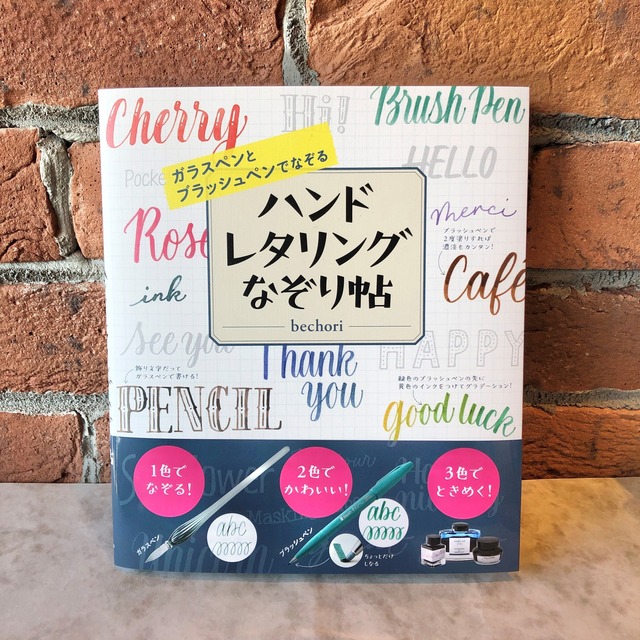 Cherry
Hi!
Brush Pen
ガラスペンと
ブラッシュペンでなぞる
HELLO
Pocke
ハンド
レタリング
なぞり帖
bechori
Rose
merci
ブラッシュペンで
2度塗りすれば
濃淡もカンタン!
ink
Café
See you
HAPPY
飾り文字だって
ガラスペンで書ける!
Thank
you
緑色のブラッシュペンの先に
黄色のインクをつけてグラデーション!
PENCIL
good luck
1色で
なぞる!
2色で
かわいい!
3色で
ときめく!
abc
abc
ガラスペン
ブラッシュペン
ちょっとだけ
しなる